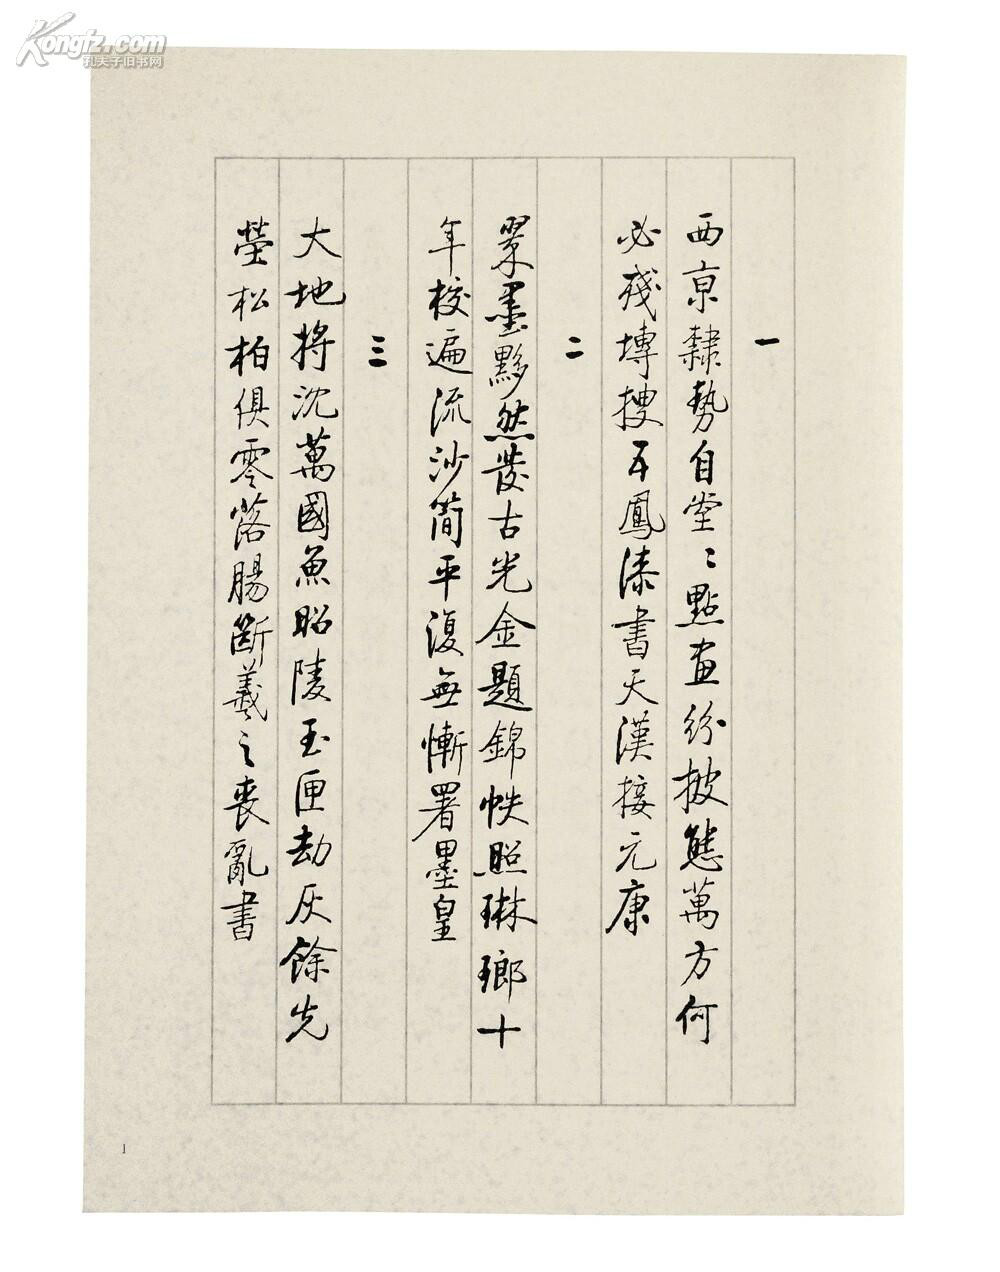 Kongfz.com
孔夫子旧书网
一
西京隸勢自堂〻點畫紛披態萬方何
必殘塼搜五鳳漆書天漢接元康
二
翠墨黟然發古光金題錦帙照琳瑯十
年校遍流沙簡平復無慚署墨皇
三
大地將沈萬國魚昭陵玉匣劫灰餘先
塋松柏俱零落腸斷羲之喪亂書
1